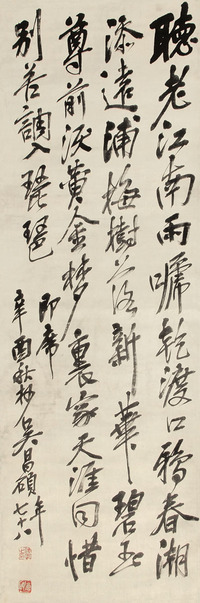 聽老江南雨嘯乾渡口鴉春潮
添遠浦梅樹落新華碧玉
尊前淚黃金夢裏家天涯同惜
別苦調入琵琶
即席
辛酉秋杪吳昌碩年七十八